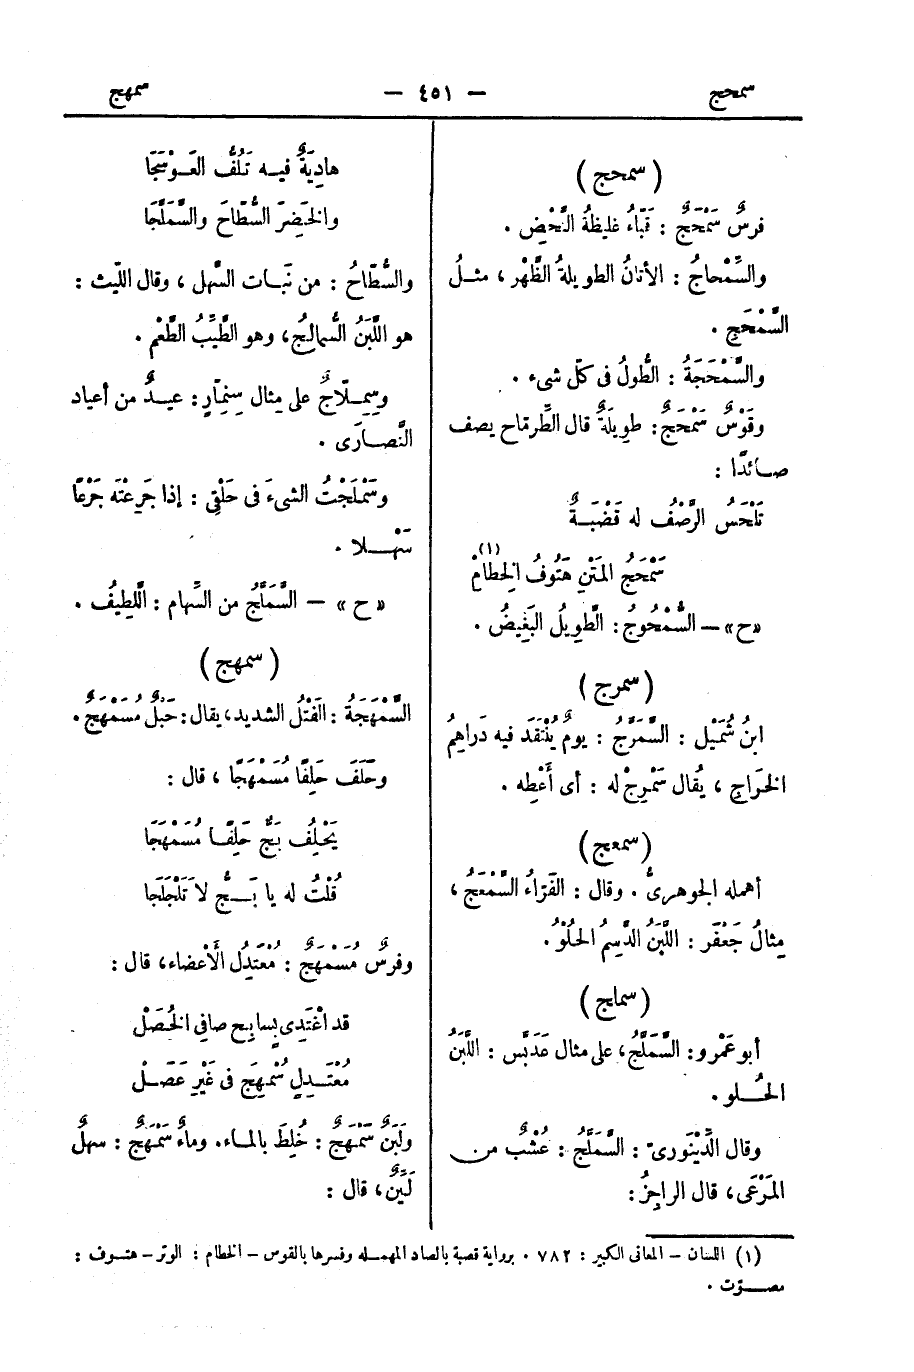 سمحج — ٤٥١ — سمهج
(سمحج)
فرسٌ سَمْحَجٌ : قَبّاءُ غليظةُ النَّحْضِ .
والسِّمْحاجُ : الأتانُ الطويلةُ الظَّهْرِ ، مثـلُ
السَّمْحَجِ .
والسَّمْحَجَةُ : الطُّولُ فى كلّ شىء .
وقَوْسٌ سَمْحَجٌ: طويلةٌ قال الطِّرمّاح يصف
صـائدًا :
تَلْحَسُ الرَّصْفُ له قَضْبَـةٌ
سَمْحَجُ المَتْنِ هَتُوفُ الخِطامْ (١)
«ح» — السُّمْحُوجُ : الطَّوِيلُ البَغِيضُ .
(سمرج)
ابنُ شُمَيْل : السَّمَرَّجُ : يومٌ يُنْتَقَد فيه دَراهِمُ
الخَراجِ ، يُقال سَمْرِجْ له : أى أَعْطِه .
(سمعج)
أهمله الجوهرىُّ . وقال : الفَرّاءُ السَّمْعَجُ ،
مِثالُ جَعْفَر : اللَّبَنُ الدَّسِمُ الحُلْوُ .
(سملج)
أبو عَمْرو : السَّمَلَّجُ ، على مثال عَدَبَّس : اللَّبَنُ
الحُـلو .
وقال الدِّينَوَرىّ : السَّمَلَّج : عُشْبٌ من
المَرْعَى ، قال الراجِزُ :
هادِيَةٌ فيـه تَلُفُّ العَـوْسَجَا
والخَضِرَ السُّطّاحَ والسَّمَلَّجَا
والسُّطّاحُ : من نَبـات السَّهل ، وقال اللّيث :
هو اللَّبَنُ السُّمالِجُ، وهو الطَّيِّبُ الطَّعْمِ .
وسِمِلّاجٌ على مِثال سِنِمّارٍ : عيـدٌ من أعياد
النَّصـارَى .
وسَمْلَجْتُ الشىءَ فى حَلْقِى : إذا جَرِعْتَه جَرْعًا
سَهْـلا .
«ح» — السَّمَلَّجُ من السِّهام : اللَّطِيفُ .
(سمهج)
السَّمْهَجَةُ : الفَتْلُ الشديد، يقال: حَبْلٌ مُسَمْهَجٌ .
وحَلَفَ حَلِفًا مُسَمْهَجًا ، قال :
يَحْلِفُ بَجٌّ حَلِفًـا مُسَمْهَجَا
قُلْتُ له يا بَـجُّ لاَ تَلَجْلَجَا
وفرسٌ مُسَمْهَجٌ : مُعْتَدِلُ الأَعْضاء، قال :
قد اغْتَدِى بِسابِحٍ صافِى الخُصَلْ
مُعْتَـدِلٍ سُمْهِجَ فى غَيْرِ عَصَـلْ
ولَبَنٌ سَمْهَجٌ : خُلِطَ بالمـاء. وماءٌ سَمْهَجٌ : سهلٌ
لَيِّنٌ، قال :
(١) اللسان – المعانى الكبير : ٧٨٢ . برواية قصبة بالصاد المهمله وفسرها بالقوس – الخطام : الوتر – هتـوف :
مصـوّت .